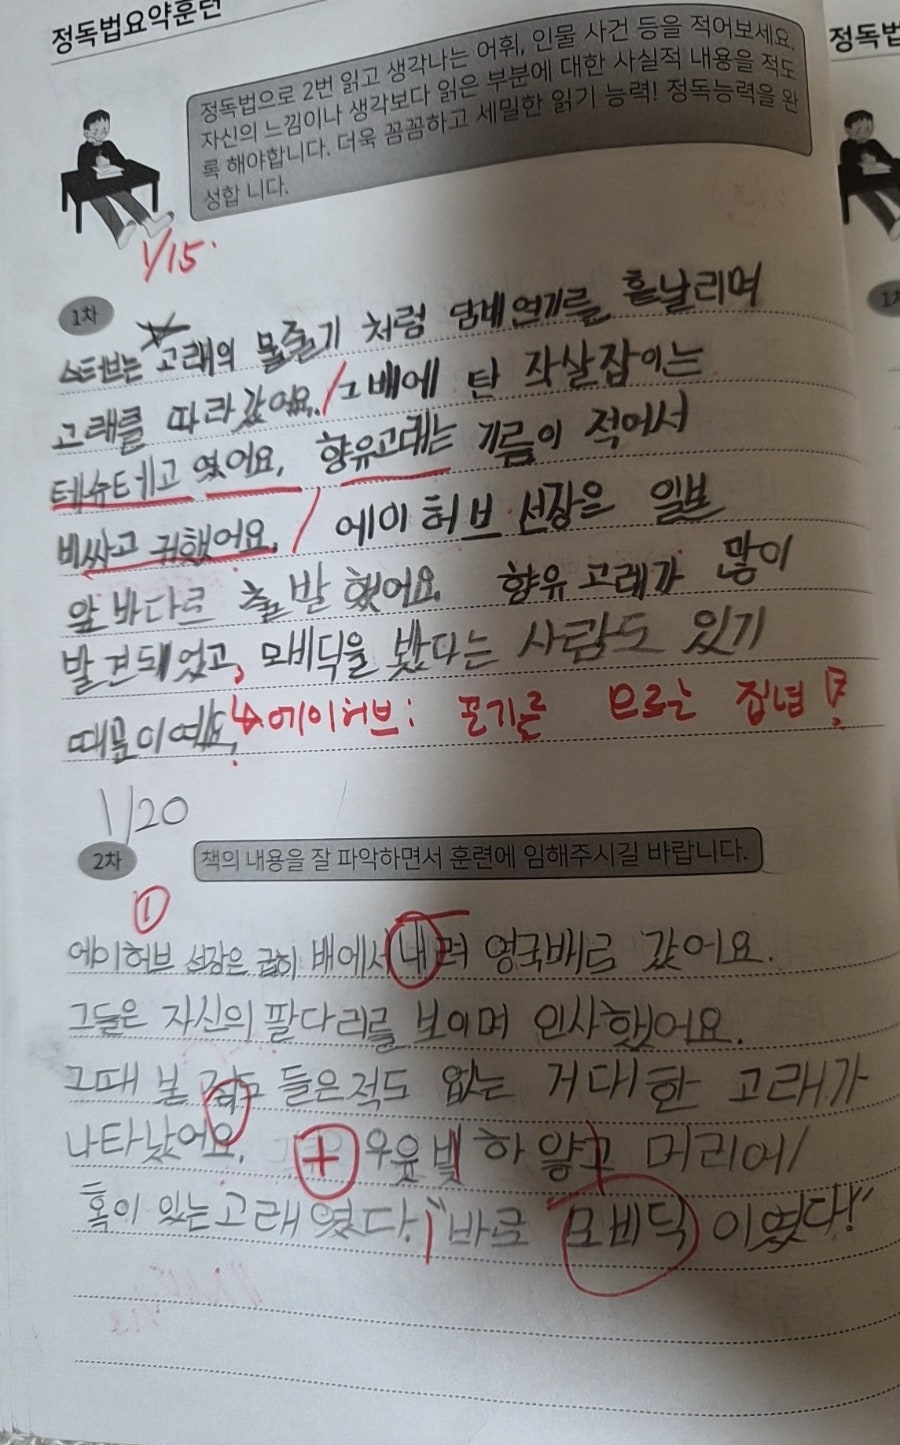 정독법요약훈련
정독법으로 2번 읽고 생각나는 어휘, 인물 사건 등을 적어보세요.
자신의 느낌이나 생각보다 읽은 부분에 대한 사실적 내용을 적도
록 해야합니다. 더욱 꼼꼼하고 세밀한 읽기 능력! 정독능력을 완
성합 니다.
정독법
1/15
1차
스터브는 고래의 물줄기 처럼 담배연기를 흩날리며
고래를 따라갔어요. / 그배에 탄 작살잡이는
테슈테고 였어요. 향유고래는 기름이 적어서
비싸고 귀했어요. / 에이허브 선장은 일본
앞바다로 출발했어요. 향유고래가 많이
발견되었고, 모비딕을 봤다는 사람도 있기
때문이예요.
↳에이허브: 포기를 모르는 집념!
1/20
2차
책의 내용을 잘 파악하면서 훈련에 임해주시길 바랍니다.
①
에이허브 선장은 급히 배에서 내려 영국배로 갔어요.
그들은 자신의 팔다리를 보이며 인사했어요.
그때 본 적도 들은적도 없는 거대한 고래가
나타났어요. + 우윳빛 하얗고 머리에
혹이 있는고래였다. "바로 모비딕 이였다!"